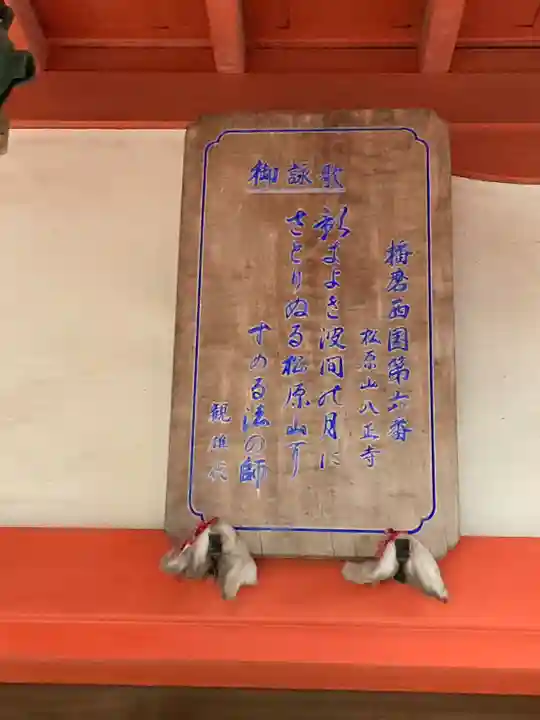 御詠歌
播磨西国第六番
松原山八正寺
影きよき波間の月に
さとりぬる松原山
すめる法の師